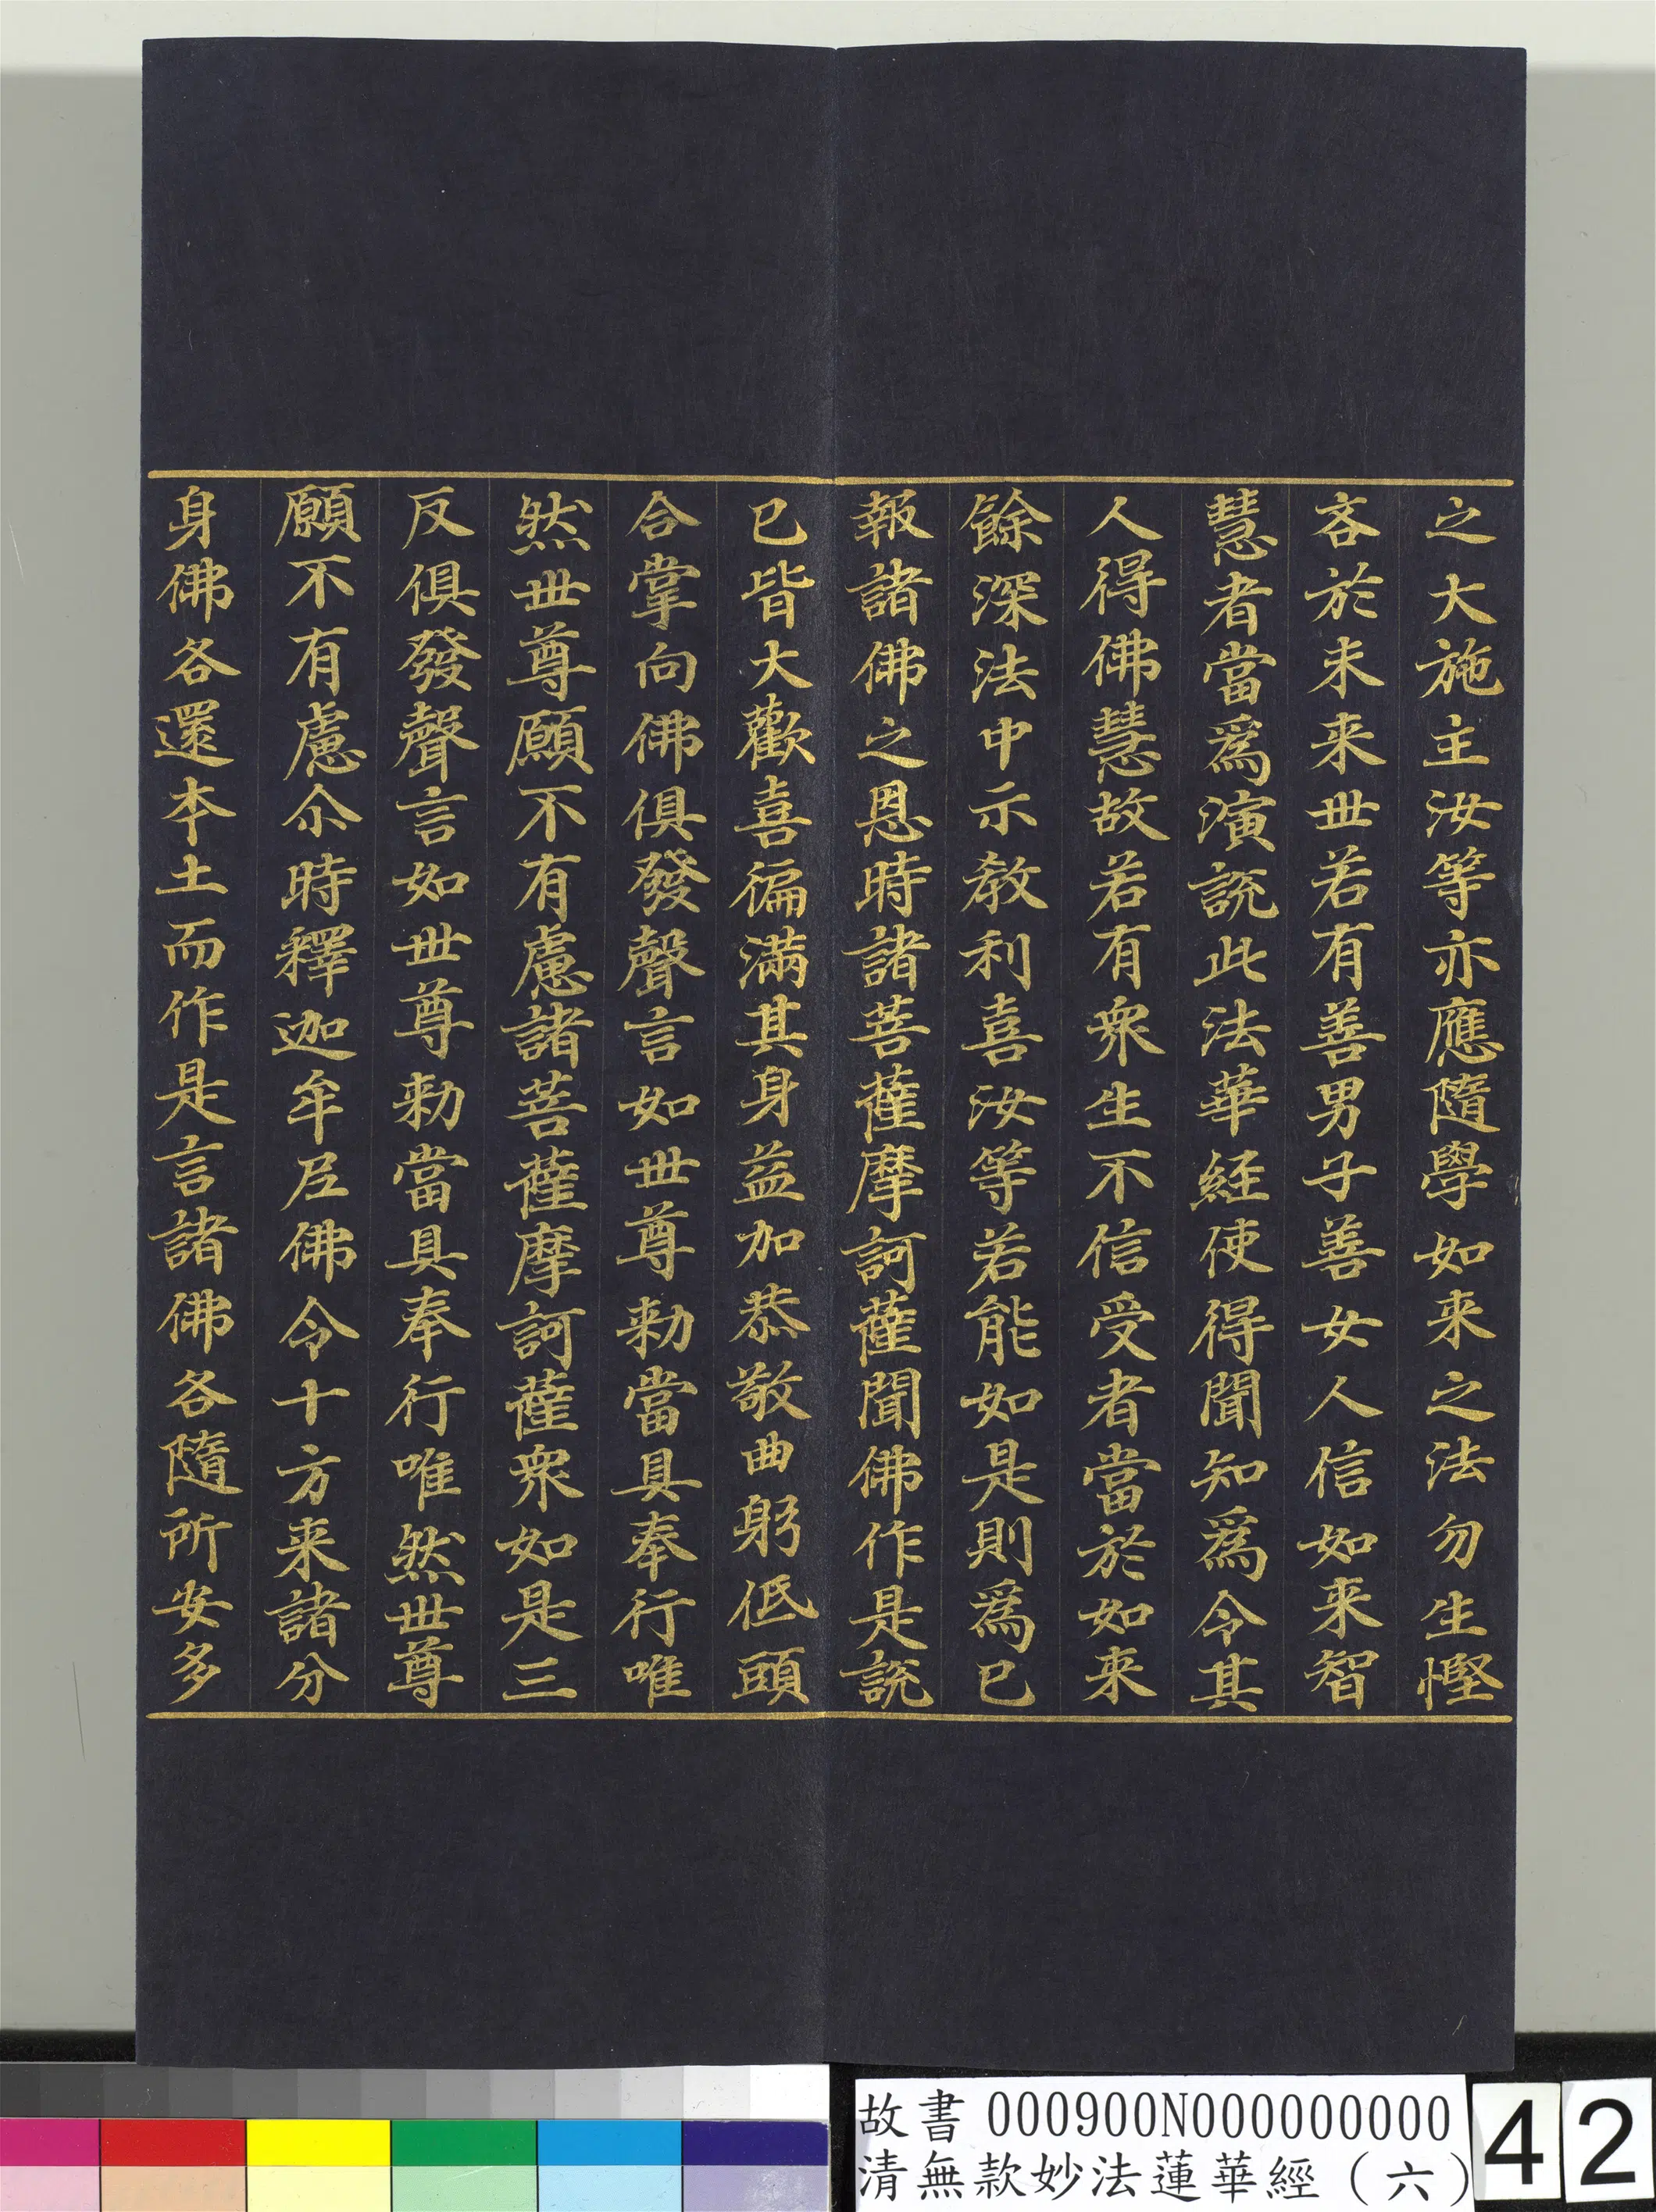 之大施主汝等亦應隨學如来之法勿生慳
吝於未来世若有善男子善女人信如来智
慧者當為演說此法華經使得聞知為令其
人得佛慧故若有衆生不信受者當於如来
餘深法中示教利喜汝等若能如是則為已
報諸佛之恩時諸菩薩摩訶薩聞佛作是說
已皆大歡喜徧滿其身益加恭敬曲躬低頭
合掌向佛俱發聲言如世尊勅當具奉行唯
然世尊願不有慮諸菩薩摩訶薩衆如是三
反俱發聲言如世尊勅當具奉行唯然世尊
願不有慮尒時釋迦牟尼佛令十方来諸分
身佛各還本土而作是言諸佛各隨所安多
故書 000900N000000000
清無款妙法蓮華經（六）
42